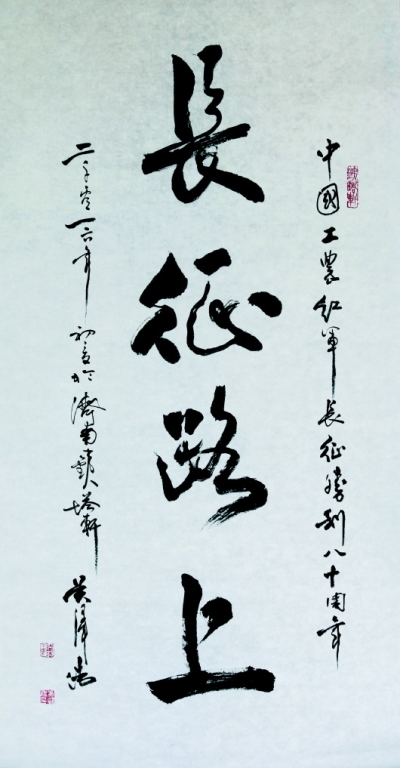 中國工農紅軍長征勝利八十周年
長征路上
二千零一六年初夏於濟南 塔軒